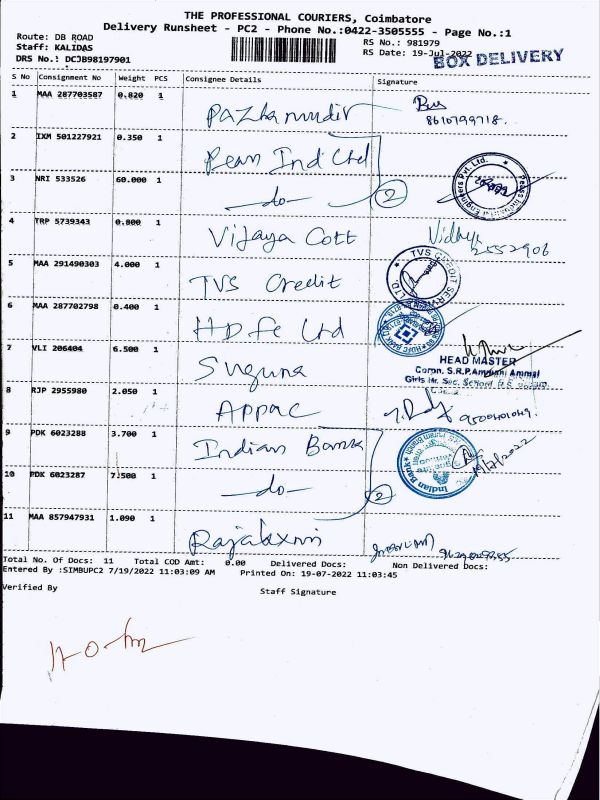 THE PROFESSIONAL COURIERS, Coimbatore
Delivery Runsheet - PC2 - Phone No.:0422-3505555 - Page No.:1
Route: DB ROAD
RS No.: 981979
Staff: KALIDAS
RS Date: 19-Jul-2022
DRS No.: DCJB98197901
BOX DELIVERY
S No Consignment No Weight PCS Consignee Details Signature
1 MAA 287703587 0.820 1 Pazhamudir
8610799718.
2 IXM 501227921 0.350 1 Pean Ind Ltd
3 NRI 533526 60.000 1 -do- 2
4 TRP 5739343 0.800 1 Vijaya Cott Vidhya
2552906
5 MAA 291490303 4.000 1 TVS Credit
TVS CREDIT SERV LTD.
6 MAA 287702798 0.400 1 HDFC Ltd
7 VLI 206404 6.500 1 Suguna
HEAD MASTER
Corpn. S.R.P.Ammani Ammal
Girls Hr. Sec. School
8 RJP 2955980 2.050 1 Appac
9500401049.
9 PDK 6023288 3.700 1 Indian Bank
Indian Bank
19/7/2022
10 PDK 6023287 7.500 1 -do- 2
11 MAA 857947931 1.090 1 Rajalaxmi
Total No. Of Docs: 11 Total COD Amt: 0.00 Delivered Docs: Non Delivered Docs:
Entered By :SIMBUPC2 7/19/2022 11:03:09 AM Printed On: 19-07-2022 11:03:45
Verified By Staff Signature